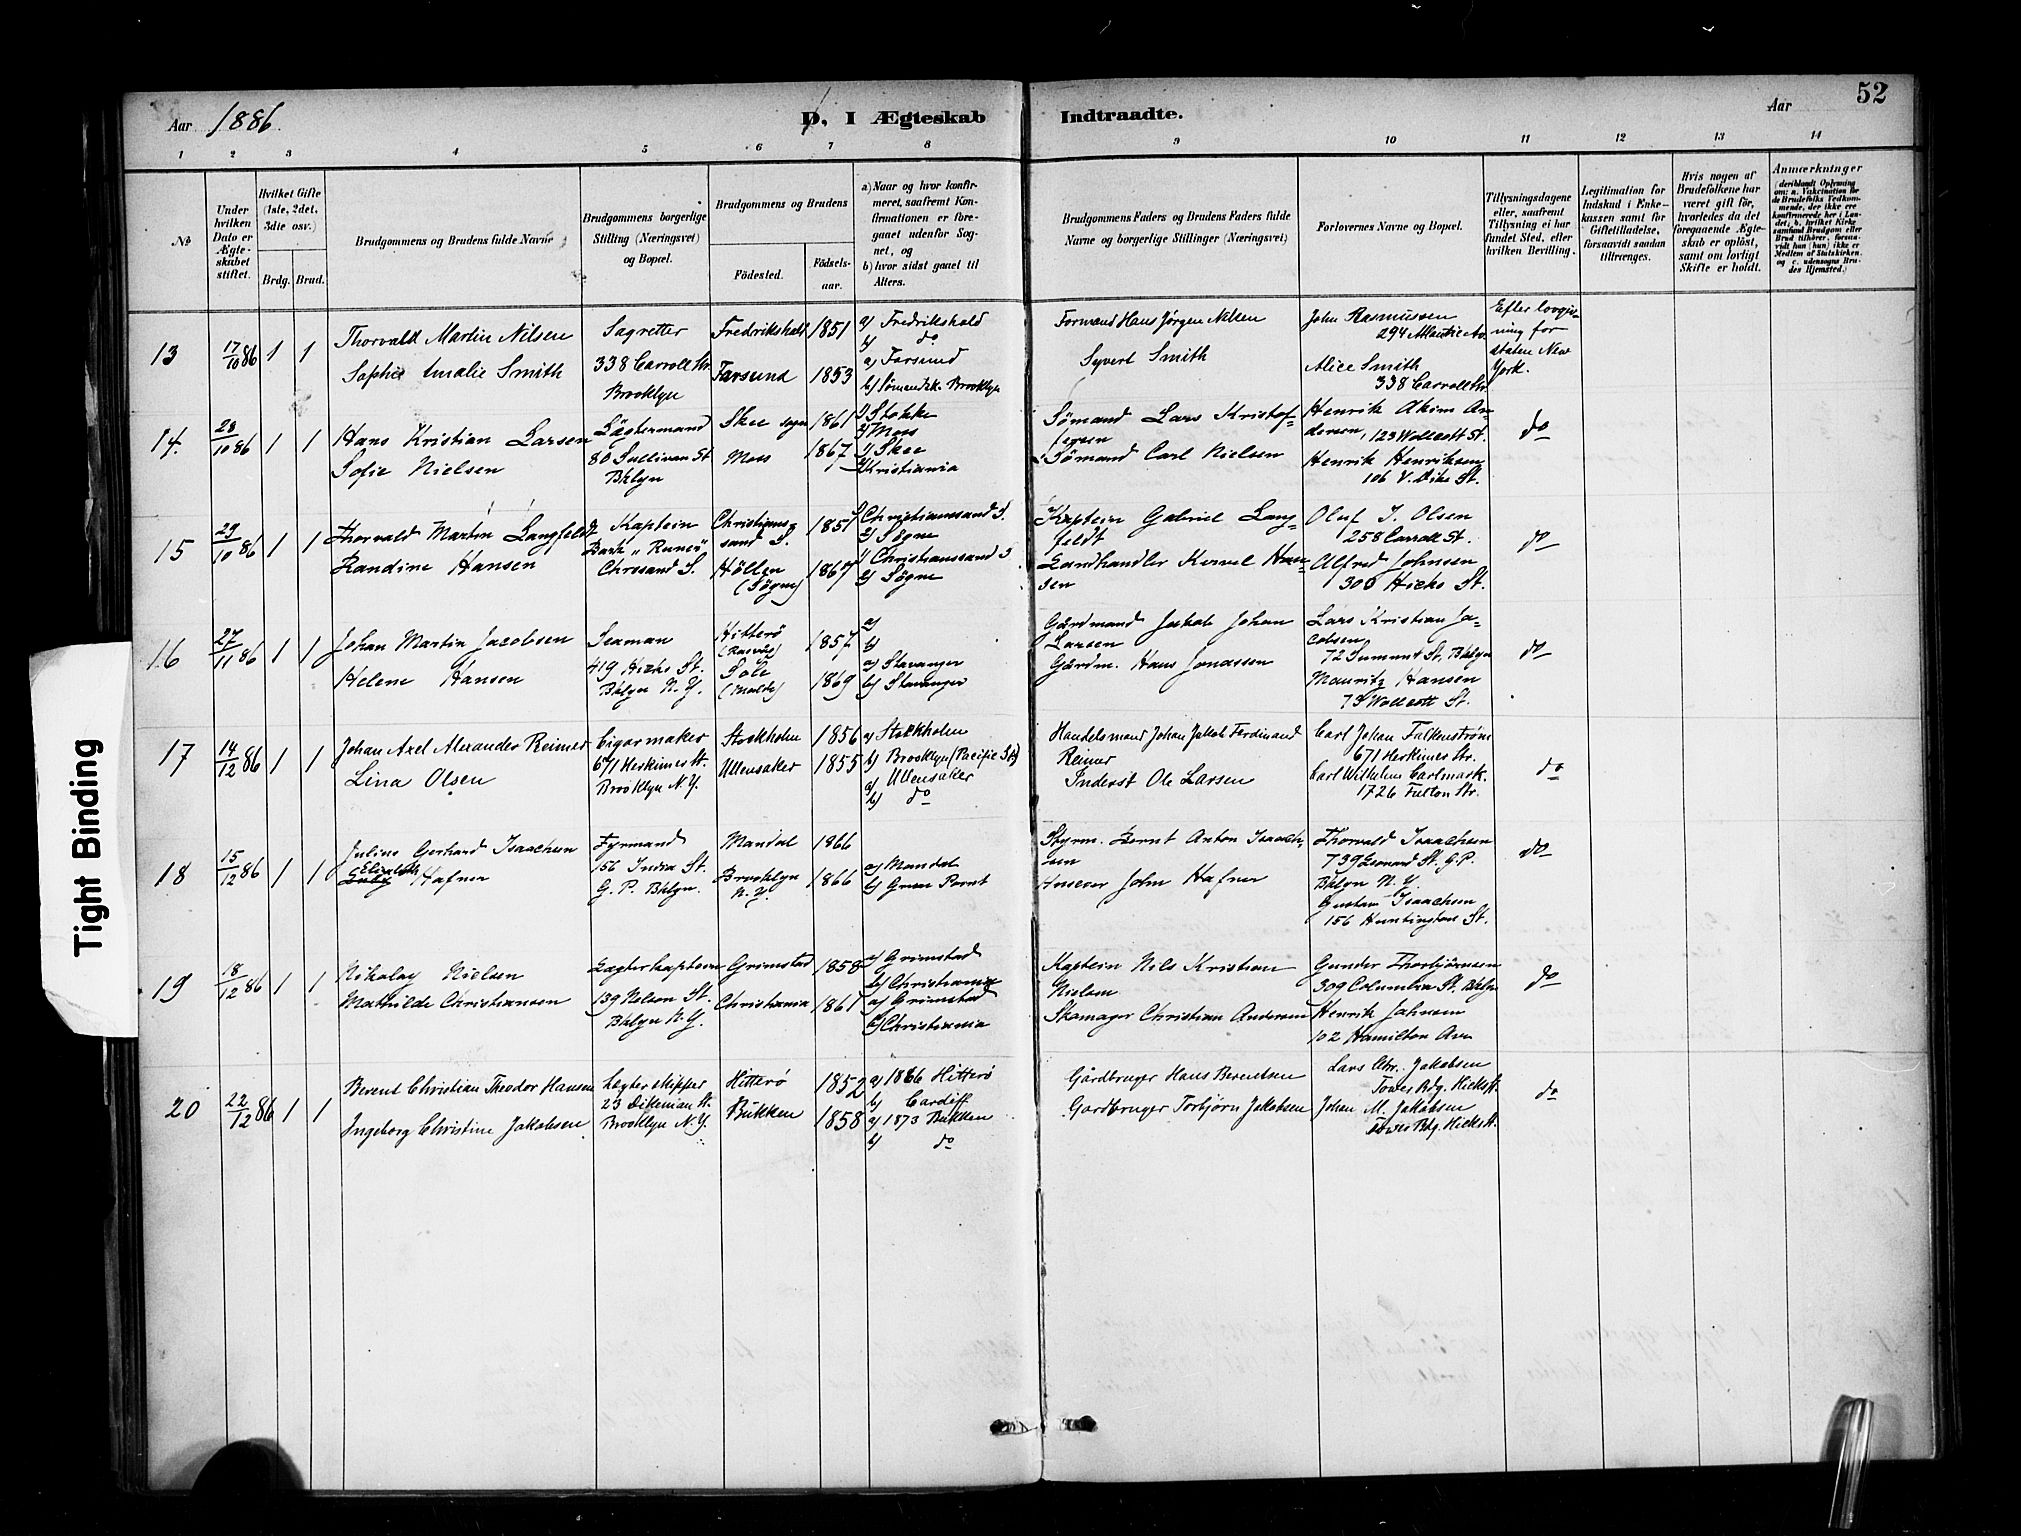 Aar 1886.
D. I Ægteskab Indtraadte.
Aar 52
1 2 3 4 5 6 7 8 9 10 11 12 13 14
No
Under hvilken Dato er Ægteskabet stiftet.
Hvilket Gifte (1ste, 2det, 3die osv.)
Brdg. Brud.
Brudgommens og Brudens fulde Navne
Brudgommens borgerlige Stilling (Næringsvei) og Bopæl.
Brudgommens og Brudens
Födested.
Födsels-aar.
a) Naar og hvor konfirmeret, saafremt Konfirmationen er foregaaet udenfor Sognet, og
b) hvor sidst gaaet til Alters.
Brudgommens Faders og Brudens Faders fulde Navne og borgerlige Stillinger (Næringsvei)
Forlovernes Navne og Bopæl.
Tillysningsdagene eller, saafremt Tillysning ei har fundet Sted, efter hvilken Bevilling.
Legitimation for Indskud i Enkekassen samt for Giftetilladelse, forsaavidt saadan tiltrænges.
Hvis nogen af Brudefolkene har været gift för, hvorledes da det foregaaende Ægteskab er oplöst, samt om lovligt Skifte er holdt.
Anmærkninger
13 17/10 86 1 1
Thorvald Martin Nilsen
Sophie Amalie Smith
338 Carroll Str.
Brooklyn
Fredrikshald 1851
Farsund 1853
a) Fredrikshald
b) do
a) Farsund
b) Sømandsk. Brooklyn
Formand Hans Jørgen Nilsen
Syvert Smith
John Rasmussen
294 Atlantic Av.
Alice Smith
338 Carroll Str.
Efter lovgivning for staten New York.
14. 23/10 86 1 1
Hans Kristian Larsen
Sofie Nielsen
80 Sullivan St
Bklyn
Skee sogn 1861
Moss 1867
Stokke
Moss
Skee
Kristiania
Sömand Lars Kristofersen
Sömand Carl Nielsen
Henrik Akim Andersen, 123 Wollcott St.
Henrik Henriksen
106 V. Dike St.
do
15 29/10 86 1 1
Thorvald Martin Langfeldt
Randine Hansen
Kaptein
Chrsand S.
Christianssand S. 1857
Höllen (Sögne) 1867
Christianssand S.
Sögne
Christianssand S
Sögne
Kaptein Gabriel Langfeldt
Landhandler Hansen
Oluf J. Olsen
258 Carroll St.
Alfred Johnsen
306 Hicks St.
do
16 27/11 86 1 1
Johan Martin Jacobsen
Helene Hansen
Seaman
419 Hicks St.
Bklyn N.Y.
Hitterö 1857
1869
a)
b)
a) Stavanger
b) Stavanger
Gårdmand Jakob Johan Larsen
Gårdm. Hans Jonassen
Lars Kristian Jacobsen
72 Summit St, Bklyn
Mauritz Hansen
73 Wollcott St.
do
17 14/12 86 1 1
Johan Axel Alexander Reimer
Lina Olsen
Cigar maker
671 Herkimer St.
Brooklyn N.Y.
Stockholm 1856
Ullensaker 1855
a) Stokkholm
b) Brooklyn (Pacific St)
a) Ullensaker
b) do
Handelsmand Johan Jakob Ferdinand Reimer
Inderst Ole Larsen
Carl Johan Falkenström
671 Herkimer Str.
Carl Wilhelm Carlmark.
1726 Fulton Str.
do
18 15/12 86 1 1
Julius Gerhard Isaachsen
Elizabeth Hafner
Fyrmand
156 India St.
G. P. Bklyn.
Mandal 1866
Brooklyn N.Y. 1866
a) Mandal
b) Green Point
Styrm. Bernt Anton Isaachsen
John Hafner
Thorvald Isaachsen
739 Leonard St. G.P.
Bklyn N.Y.
Gustav Isaachsen
156 Huntington St.
do
19 18/12 86 1 1
Nikolay Nielsen
Mathilde Christiansen
Lægterkaptein
139 Nelson St.
Bklyn N.Y.
Grimstad 1858
Christiania 1861
a) Grimstad
b) Christiania
a) Grimstad
b) Christiania
Kaptein Nils Kristian Nielsen
Skomager Christian Andersen
Gunder Thorbjörnsen
309 Columbia St. Bklyn
Henrik Johnsen
102 Hamilton Ave
do
20 22/12 86 1 1
Berent Christian Theodor Hansen
Ingeborg Christine Jakobsen
Lægterskipper
Brooklyn N.Y.
Hitterø 1852
Bukken 1858
a) 1866 Hitterø
b) Cardiff
a) 1873 Bukken
b) do
Gårdbruger Hans Berentsen
Gårdbruger Torbjørn Jakobsen
Lars Chr. Jakobsen
Tower Bdg. Hicks St.
Johan M. Jakobsen
Tower Bdg. Hicks St.
do
Tight Binding